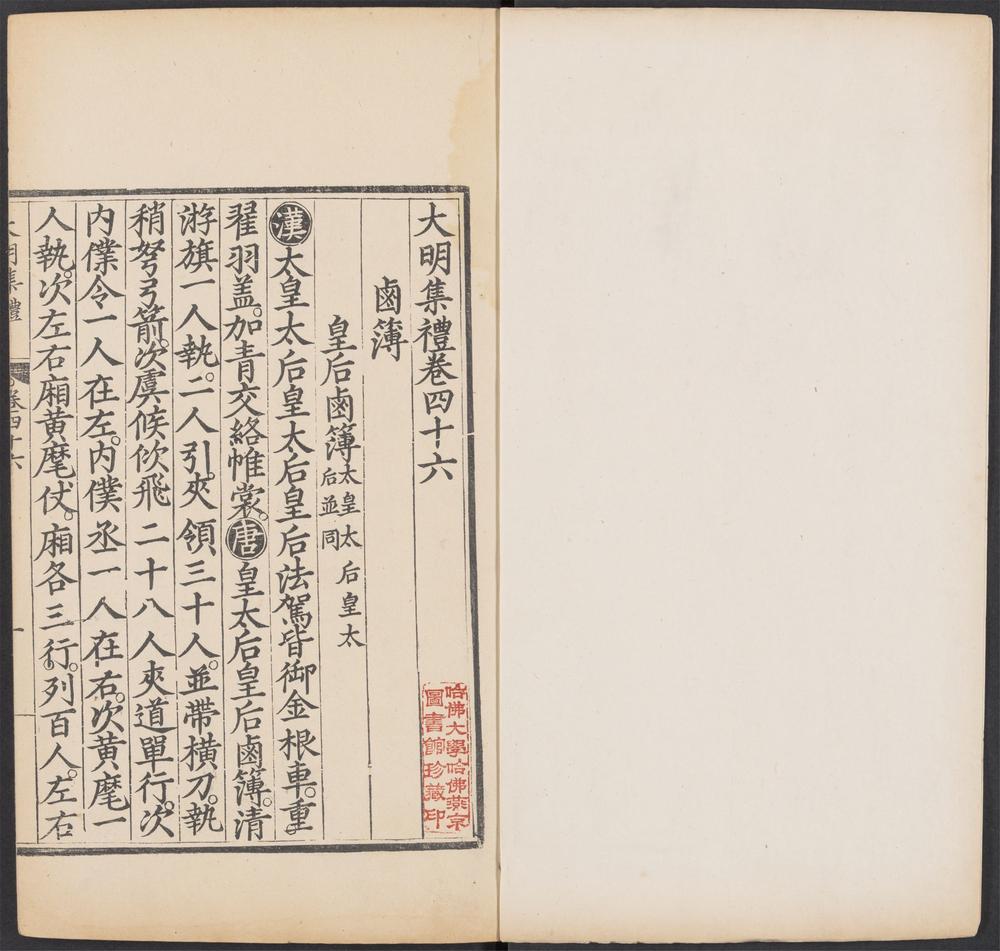 大明集禮卷四十六
鹵簿
皇后鹵簿太皇太后皇太后並同
漢太皇太后皇太后皇后法駕皆御金根車。重
翟羽盖。加青交絡帷裳。唐皇太后皇后鹵簿。清
游旗一人執。二人引。夾領三十人。並帶橫刀。執
稍弩弓箭。次虞候佽飛二十八人夾道單行。次
内僕令一人在左。内僕丞一人在右。次黄麾一
人執。次左右廂黄麾仗。廂各三行。列百人。左右
大明集禮 卷四十六 一
哈佛大學哈佛燕京
圖書館珍藏印